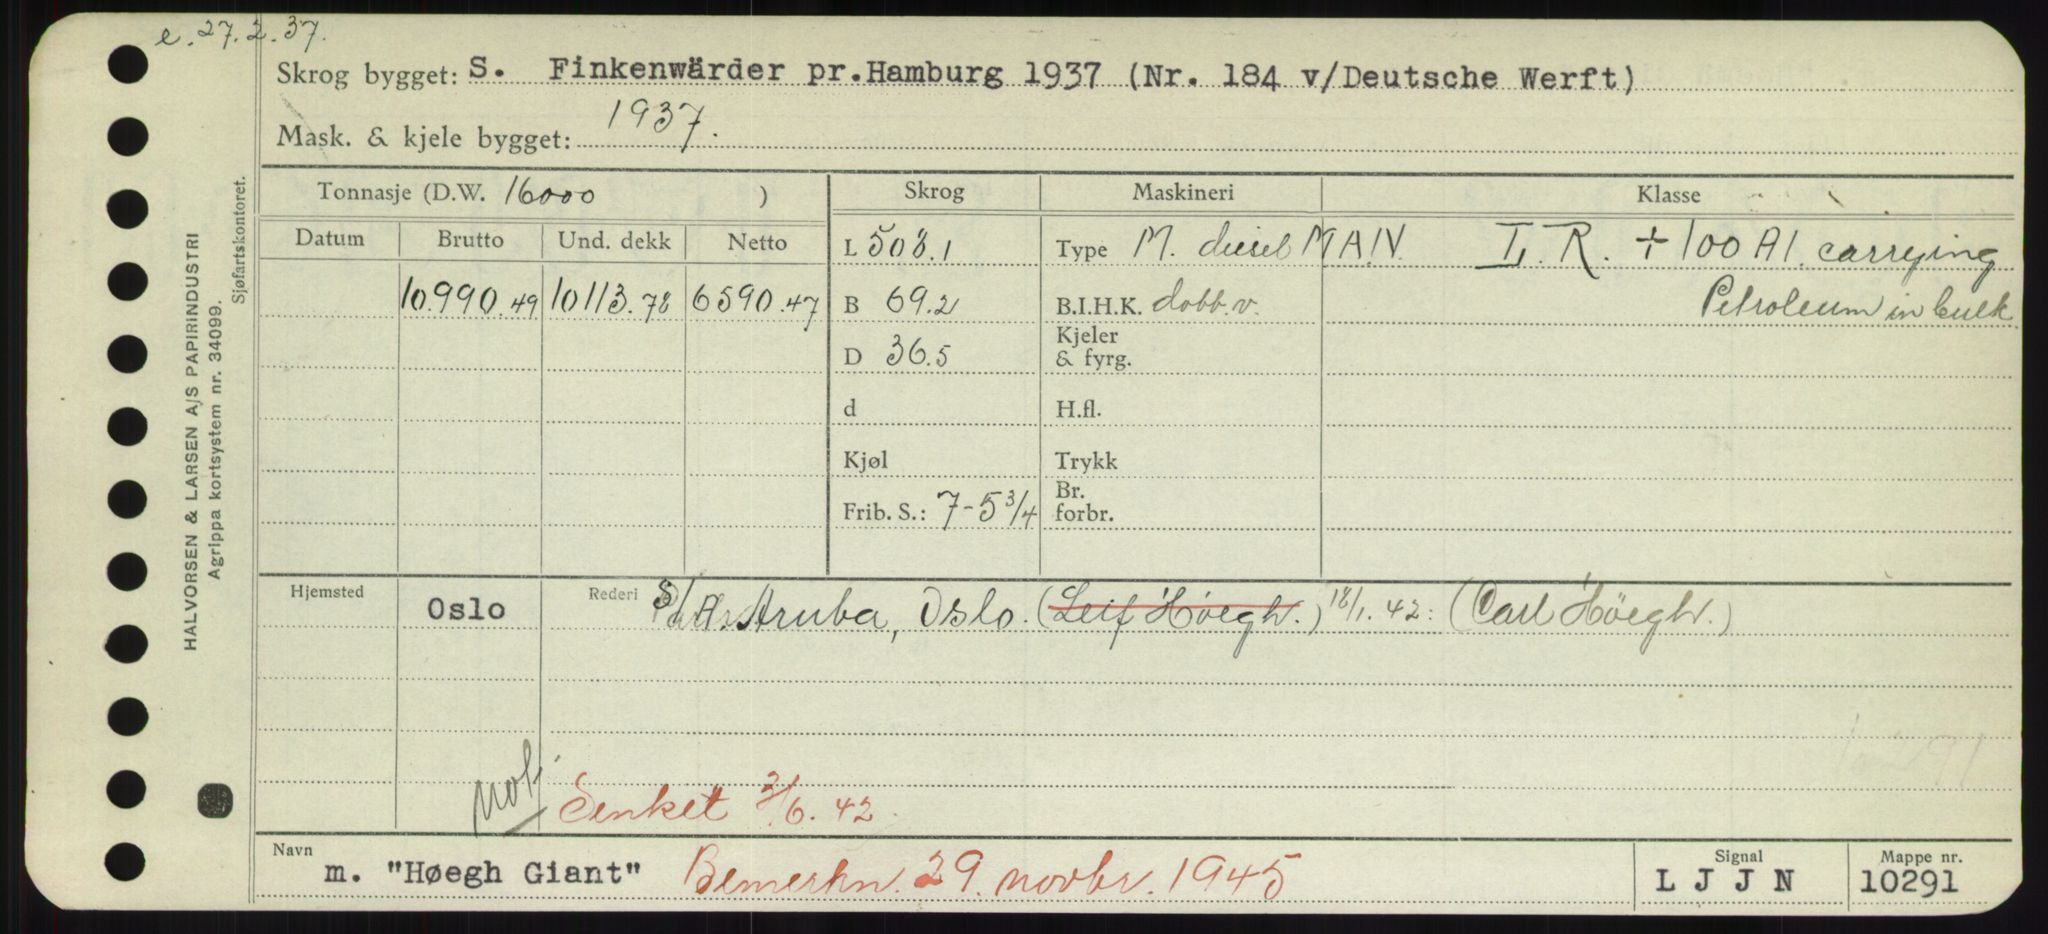 e. 27.2.37.
Skrog bygget: S. Finkenwärder pr.Hamburg 1937 (Nr. 184 v/Deutsche Werft)
Mask. & kjele bygget: 1937.
HALVORSEN & LARSEN A/S PAPIRINDUSTRI
Agrippa kortsystem nr. 34099.
Sjøfartskontoret.
Tonnasje (D.W. 16000 ) Skrog Maskineri Klasse
Datum Brutto Und. dekk Netto L 508.1 Type M. diesel M.A.N. L. R. + 100 A1. carrying
10.990.49 10113.78 6590.47 B 69.2 B.I.H.K. dobb.v. Petroleum in bulk.
D 36.5 Kjeler
& fyrg.
d H.fl.
Kjøl Trykk
Frib. S.: 7-5 3/4 Br.
forbr.
Hjemsted Oslo Rederi S/A. Aruba, Oslo. (Leif Höegh.) 18/1.42: (Carl Höegh.)
10291
not. Senket 3/6.42.
Navn m. "Høegh Giant" Bemerkn. 29. novbr. 1945 Signal L J J N Mappe nr. 10291